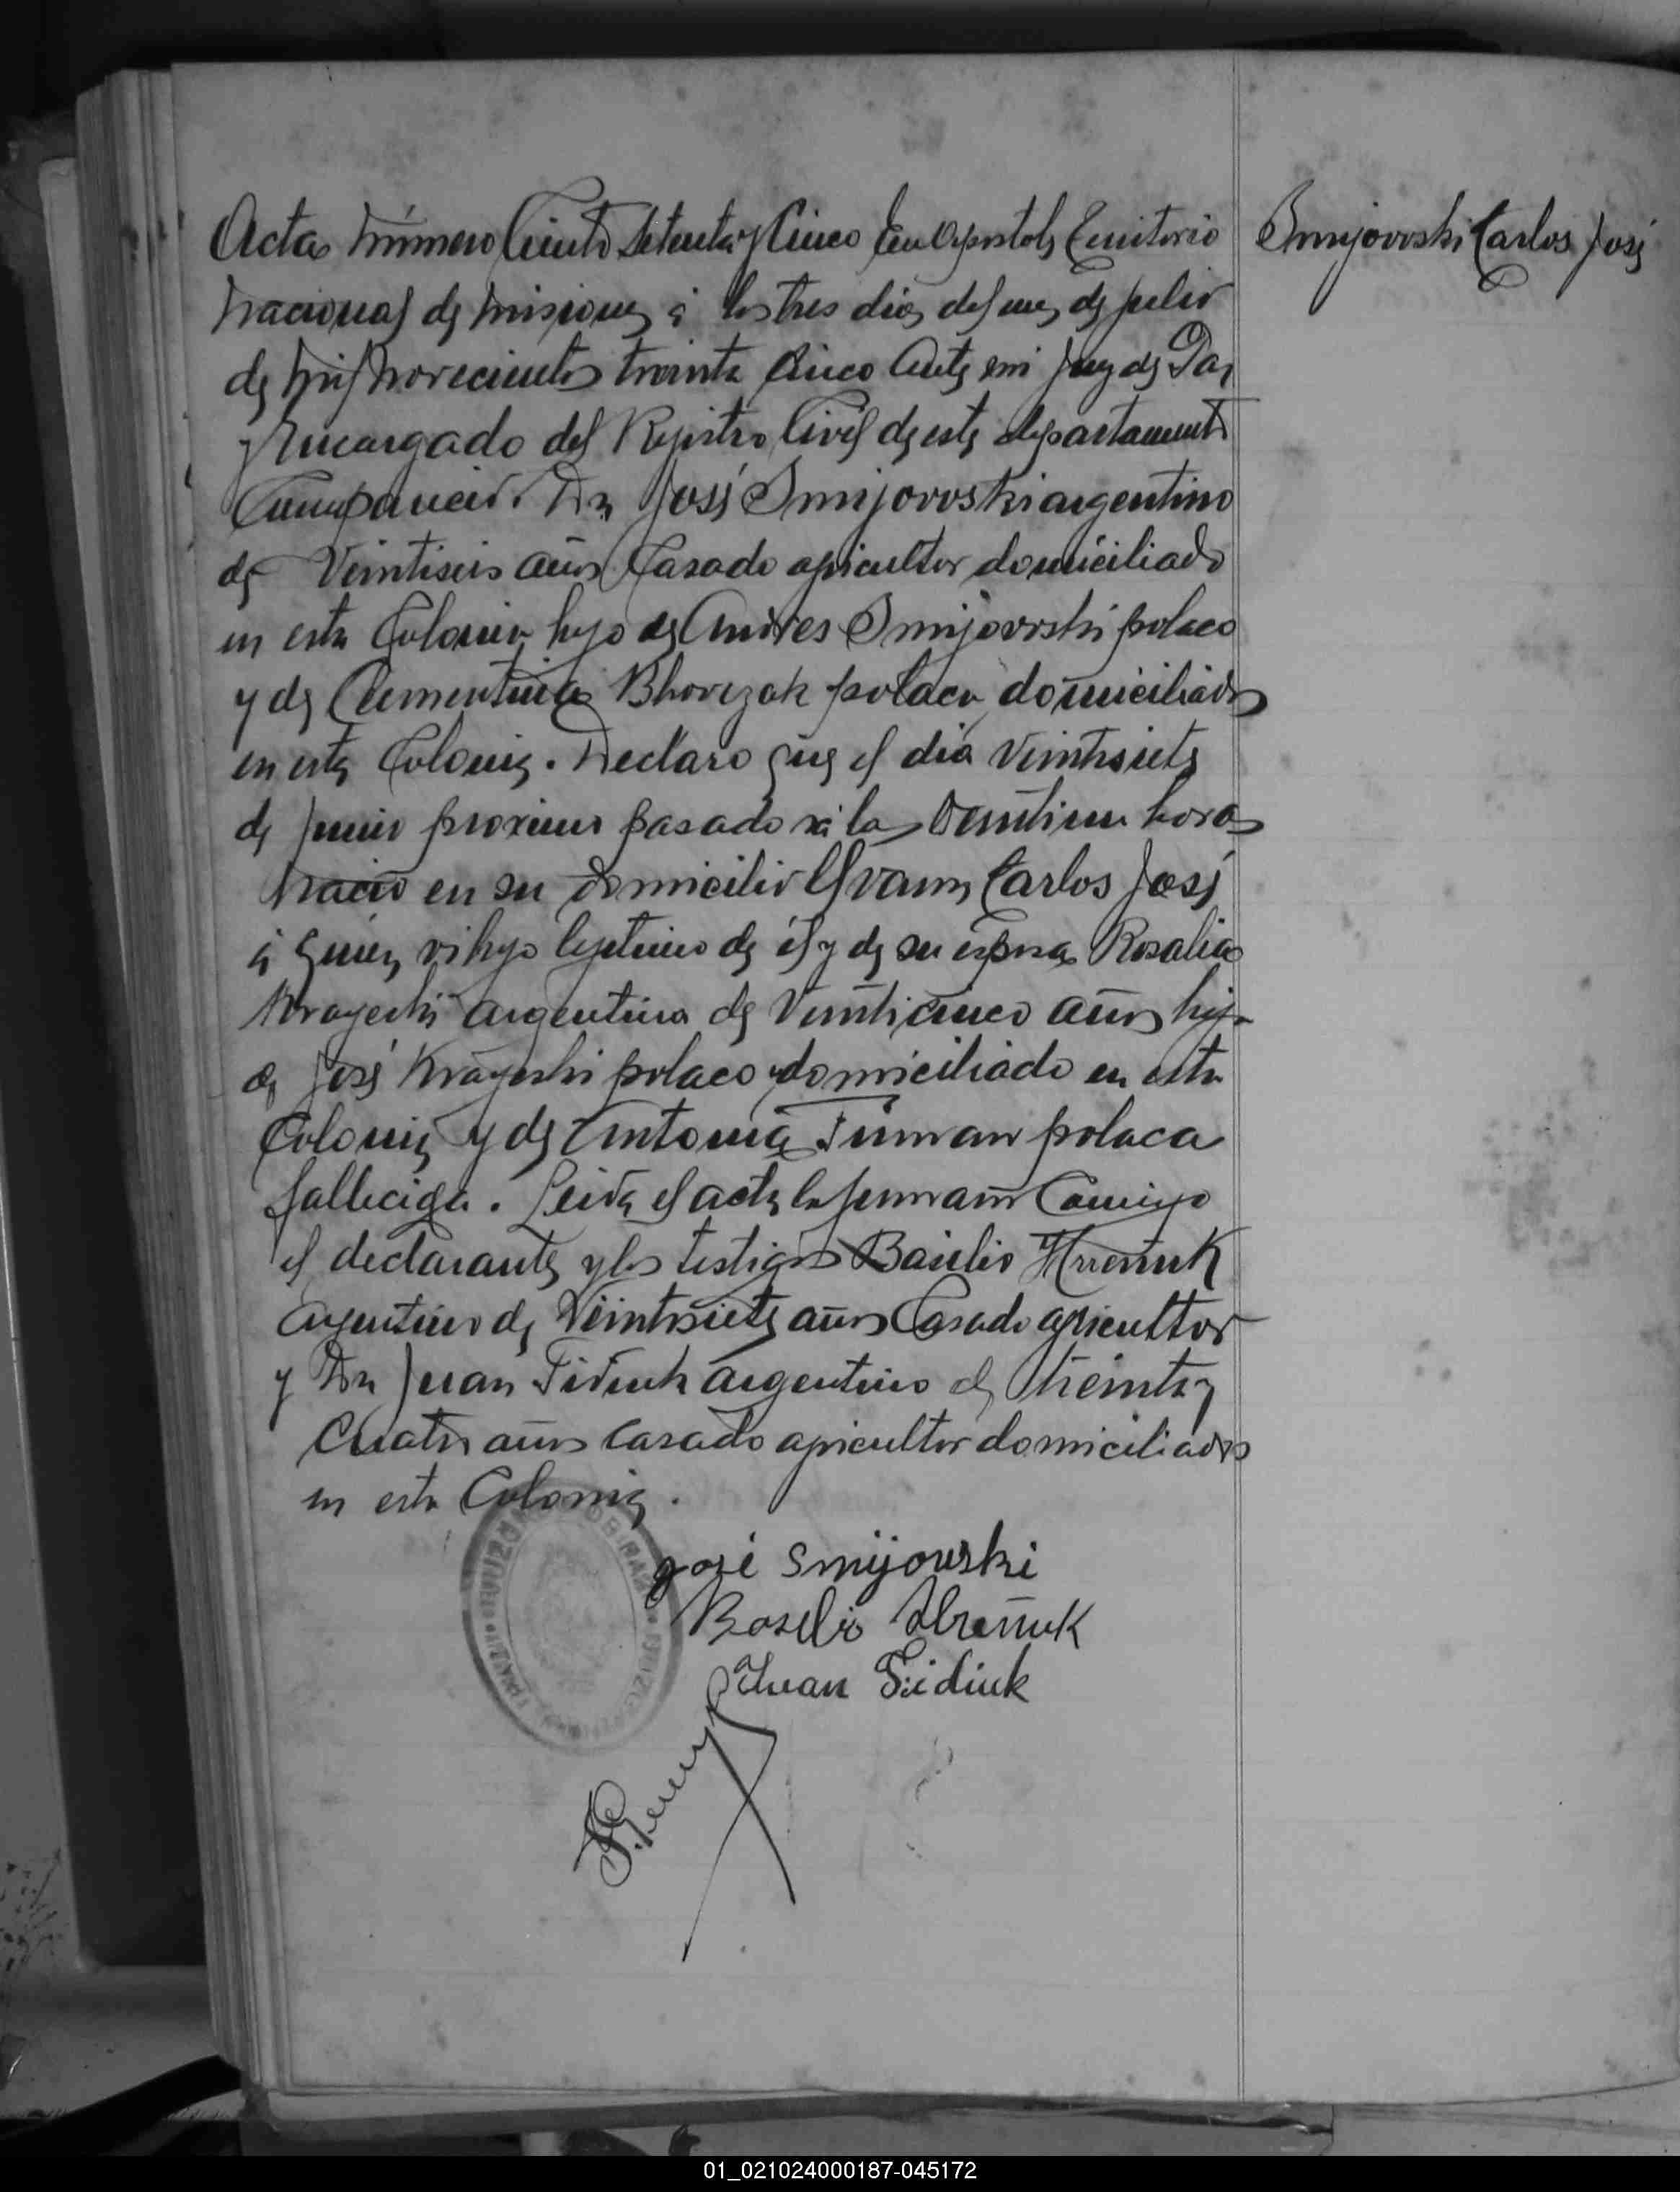 Acta Número Ciento Setenta y Cinco En Apostoles Territorio
Smijovoski Carlos José
Nacional de Misiones á los tres dias del mes de julio
de Mil Novecientos treinta Cinco Ante mi Juez de Paz
y Encargado del Registro Civil de este departamento
Compareció. Dn José Smijovoski argentino
de Veintiseis años Casado agricultor domiciliado
en esta Colonia hijo de Andres Smijovoski polaco
y de Clementina polaca domiciliados
en esta Colonia. Declaro que el dia Veintisiete
de Junio proximo pasado á las Veintiuna horas
Nacio en su domicilio el varon Carlos José
á quien vi hijo lejitimo de él y de su esposa Rosalia
Krayeski argentina de Veinticinco años hija
de José Krayeski polaco domiciliado en esta
Colonia y de Antonia polaca
fallecida. Leida el acta la firmaron Conmigo
el declarante y los testigos Basilio Hreñuk
Argentino de Veintisiete años Casado agricultor
y Dn Juan Fidiuk argentino de treinta y
Cuatro años Casado agricultor domiciliados
en esta Colonia.
José Smijowski
Basilio Hreñuk
Juan Fidiuk
01_021024000187-045172